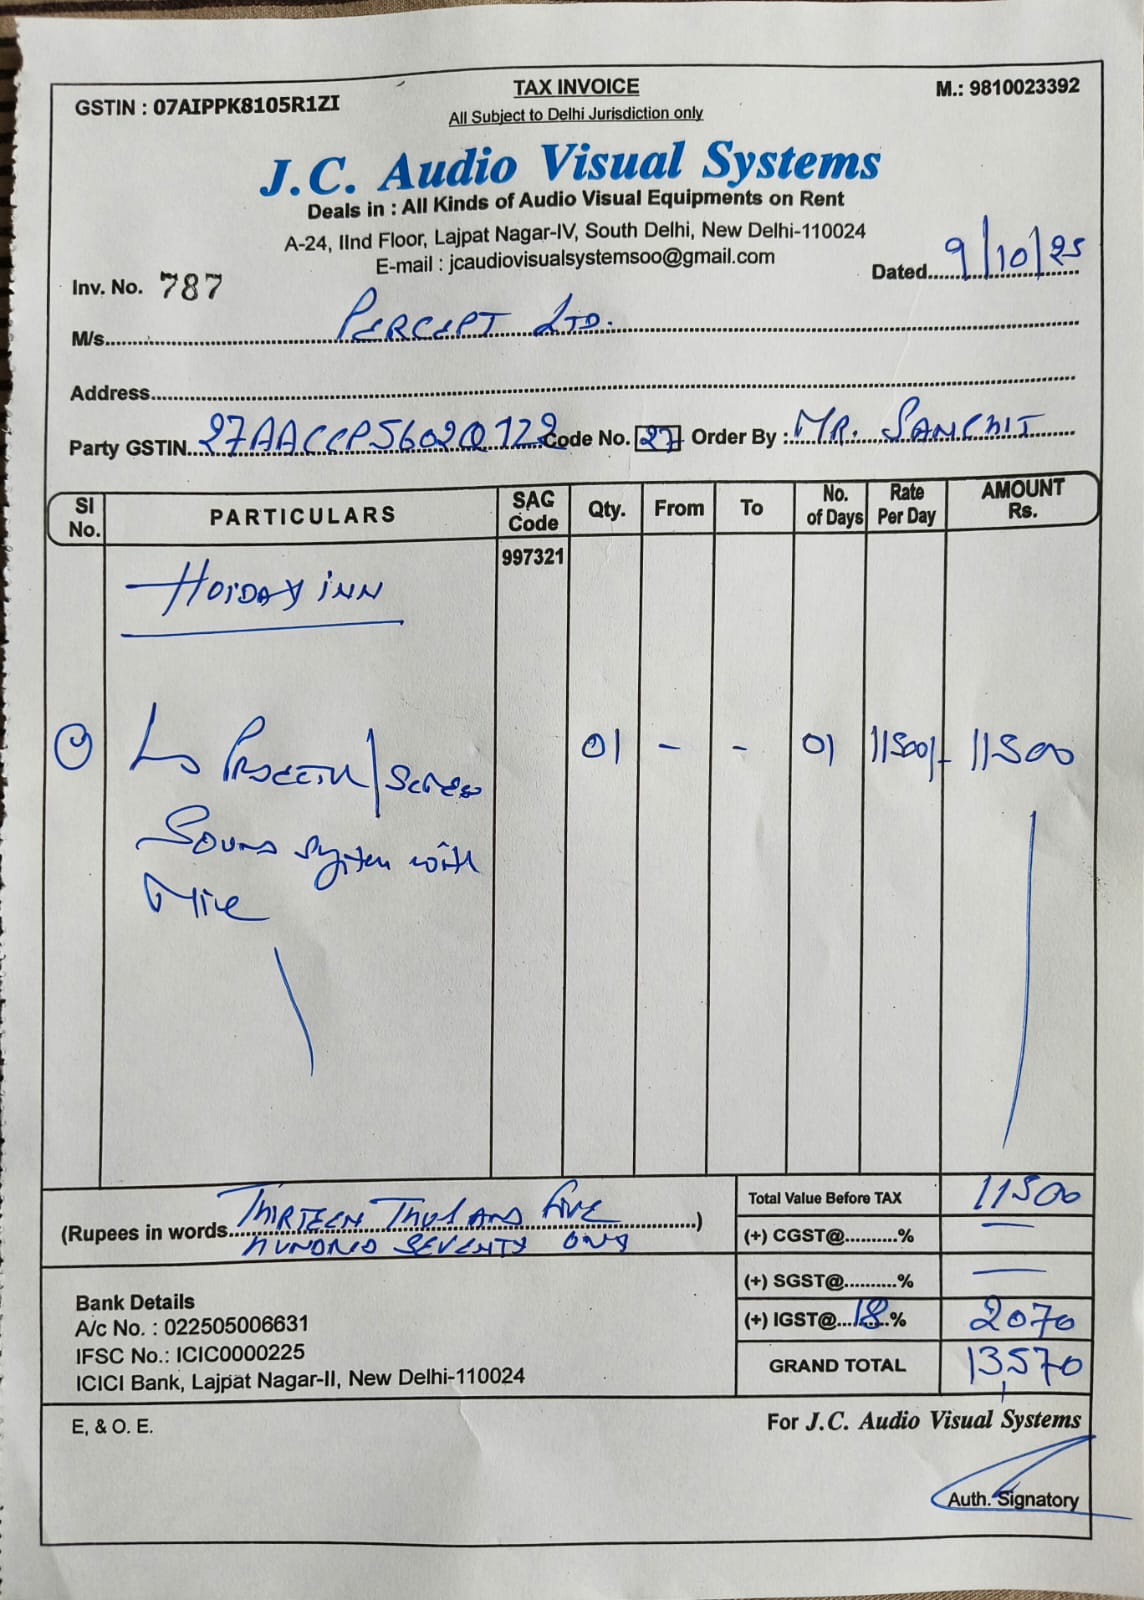 TAX INVOICE
GSTIN : 07AIPPK8105R1ZI
M.: 9810023392
All Subject to Delhi Jurisdiction only
J.C. Audio Visual Systems
Deals in : All Kinds of Audio Visual Equipments on Rent
A-24, IInd Floor, Lajpat Nagar-IV, South Delhi, New Delhi-110024
E-mail : jcaudiovisualsystemsoo@gmail.com
Inv. No. 787
Dated 9/10/25
M/s PERCEPT LTD.
Address
Party GSTIN 27AACCP5602Q1Z2 Code No. 27 Order By : MR. SANCHIT
SI No. PARTICULARS SAC Code Qty. From To No. of Days Rate Per Day AMOUNT Rs.
997321
HOIDAY INN
01 - - 01 11500/- 11500
Sound System with
Mike
(Rupees in words THIRTEEN THOUSAND FIVE
HUNDRED SEVENTY ONLY)
Total Value Before TAX 11500
(+) CGST@..........% —
(+) SGST@..........% —
(+) IGST@...18...% 2070
GRAND TOTAL 13,570
Bank Details
A/c No. : 022505006631
IFSC No.: ICIC0000225
ICICI Bank, Lajpat Nagar-II, New Delhi-110024
E, & O. E.
For J.C. Audio Visual Systems
Auth. Signatory